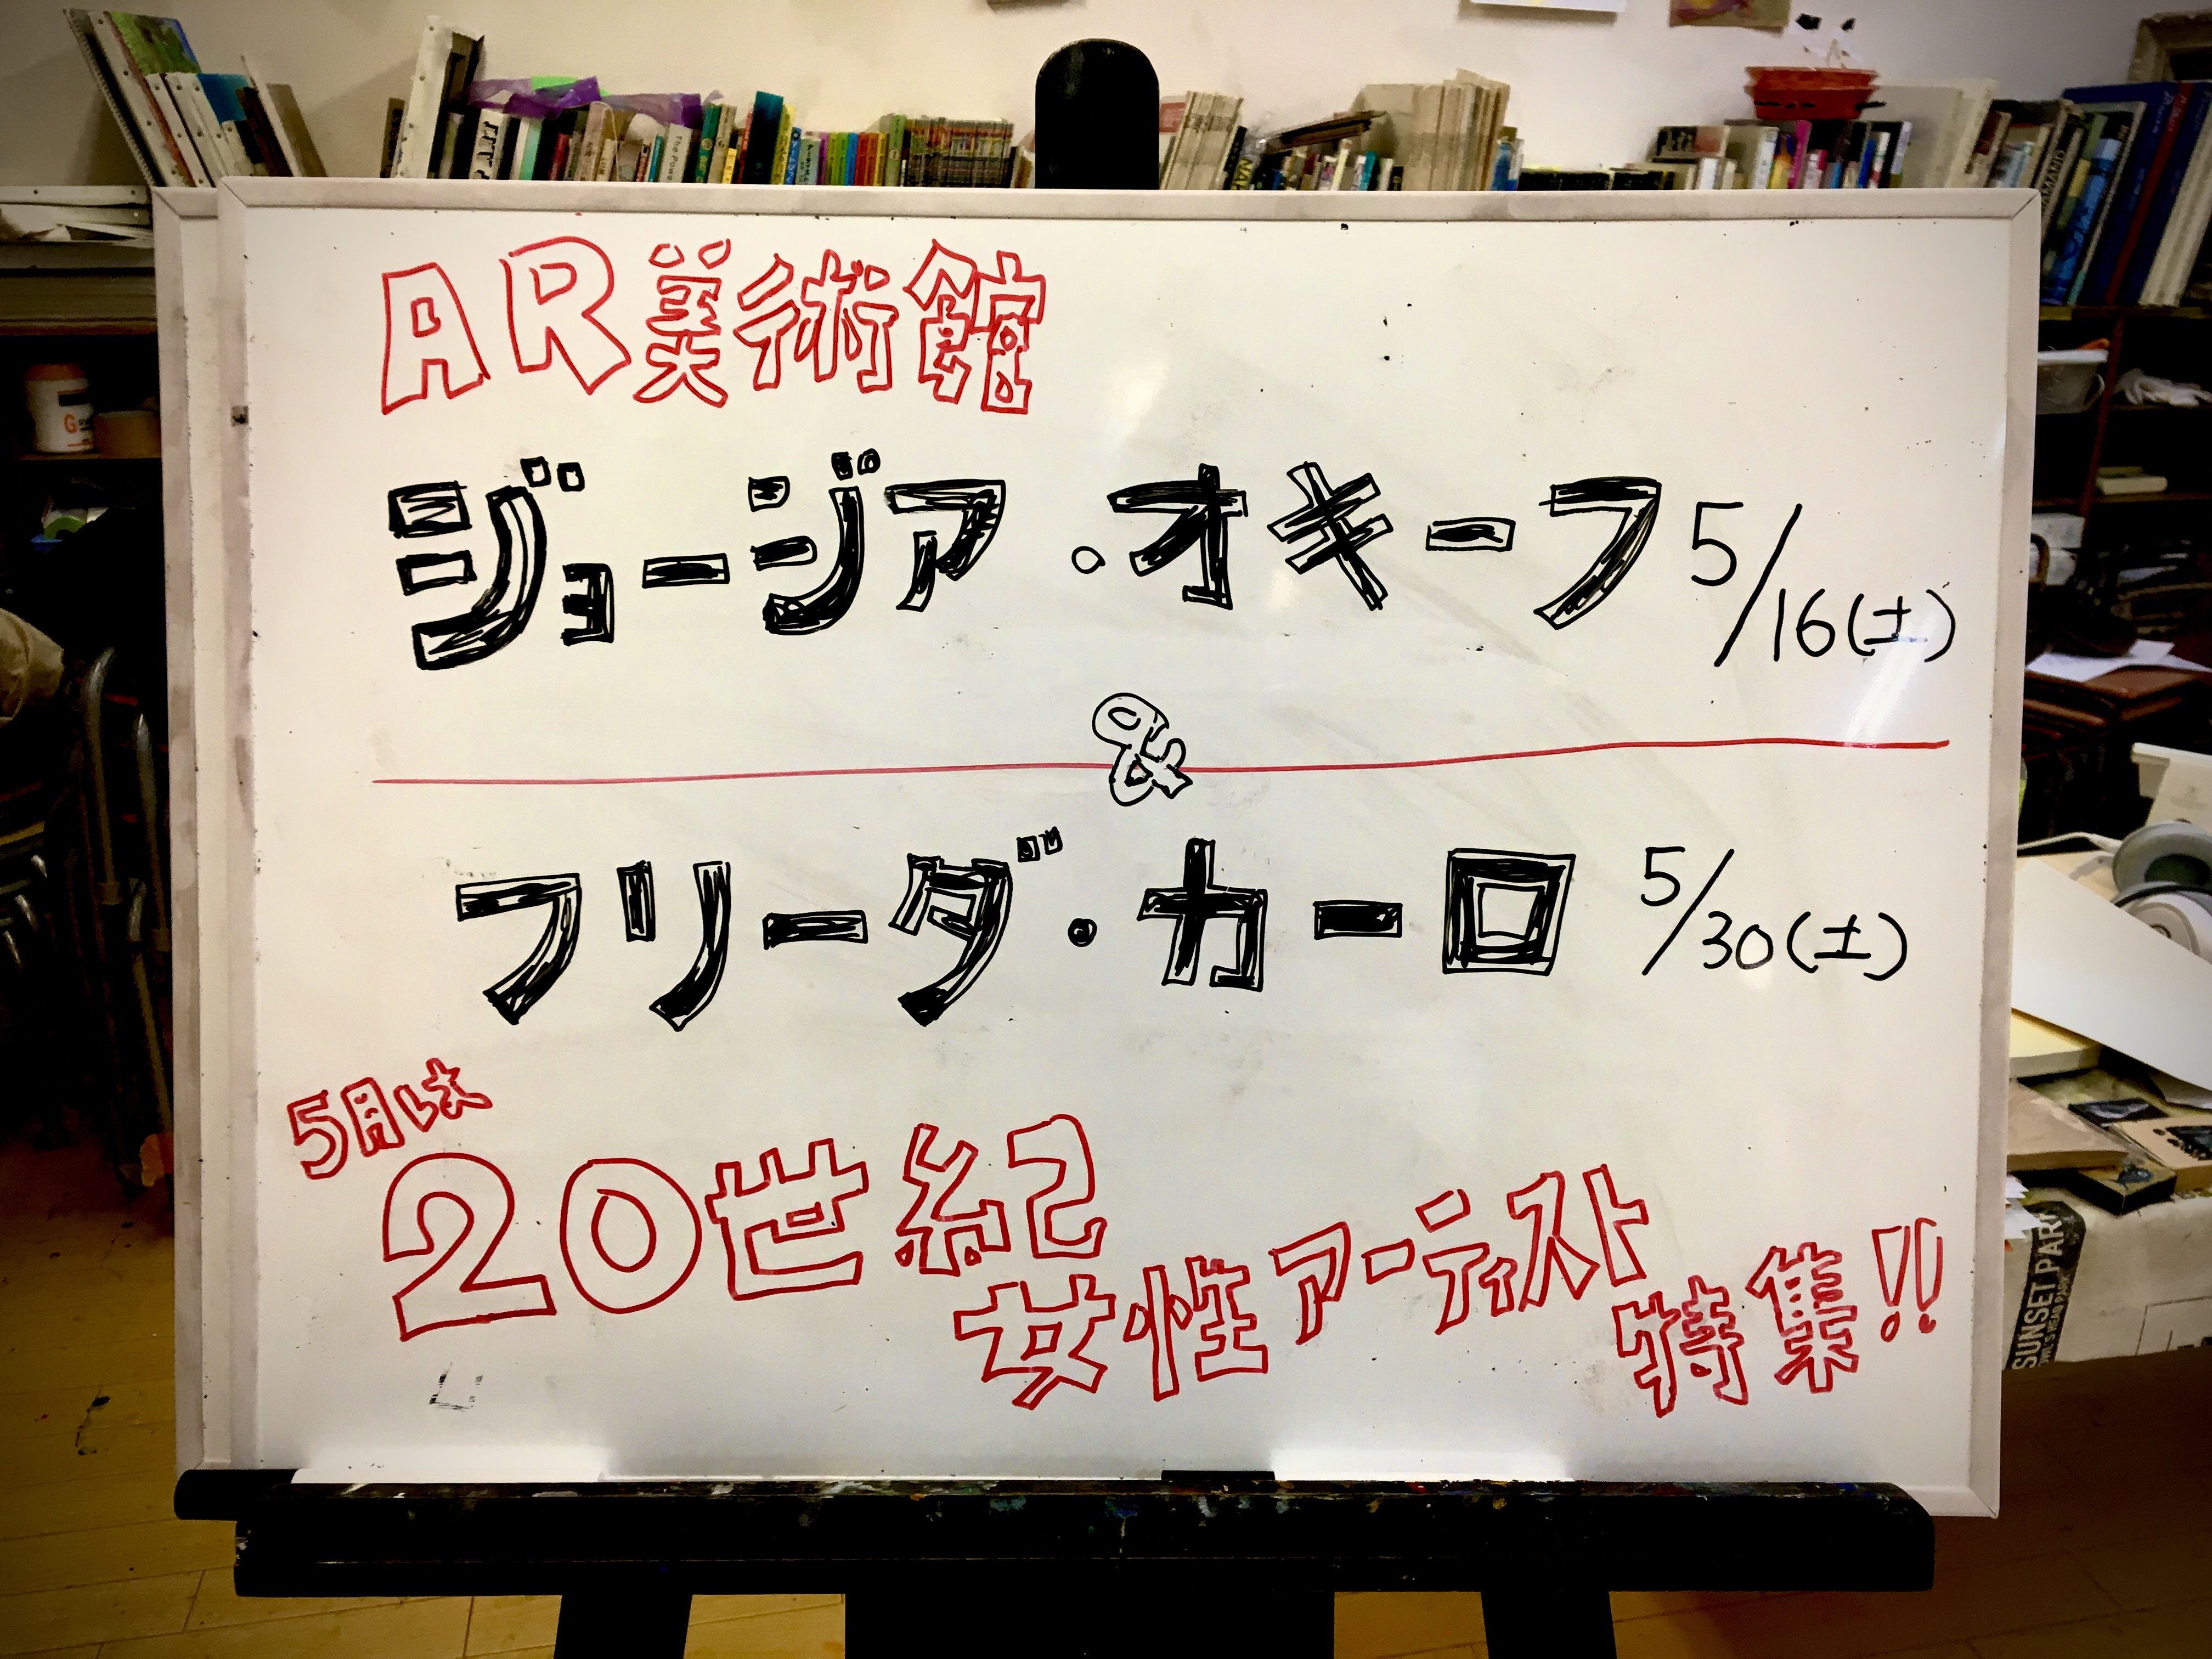 AR美術館
ジョージア・オキーフ 5/16(土)
&
フリーダ・カーロ 5/30(土)
5月は
20世紀
女性アーティスト
特集!!
SUNSET PARK